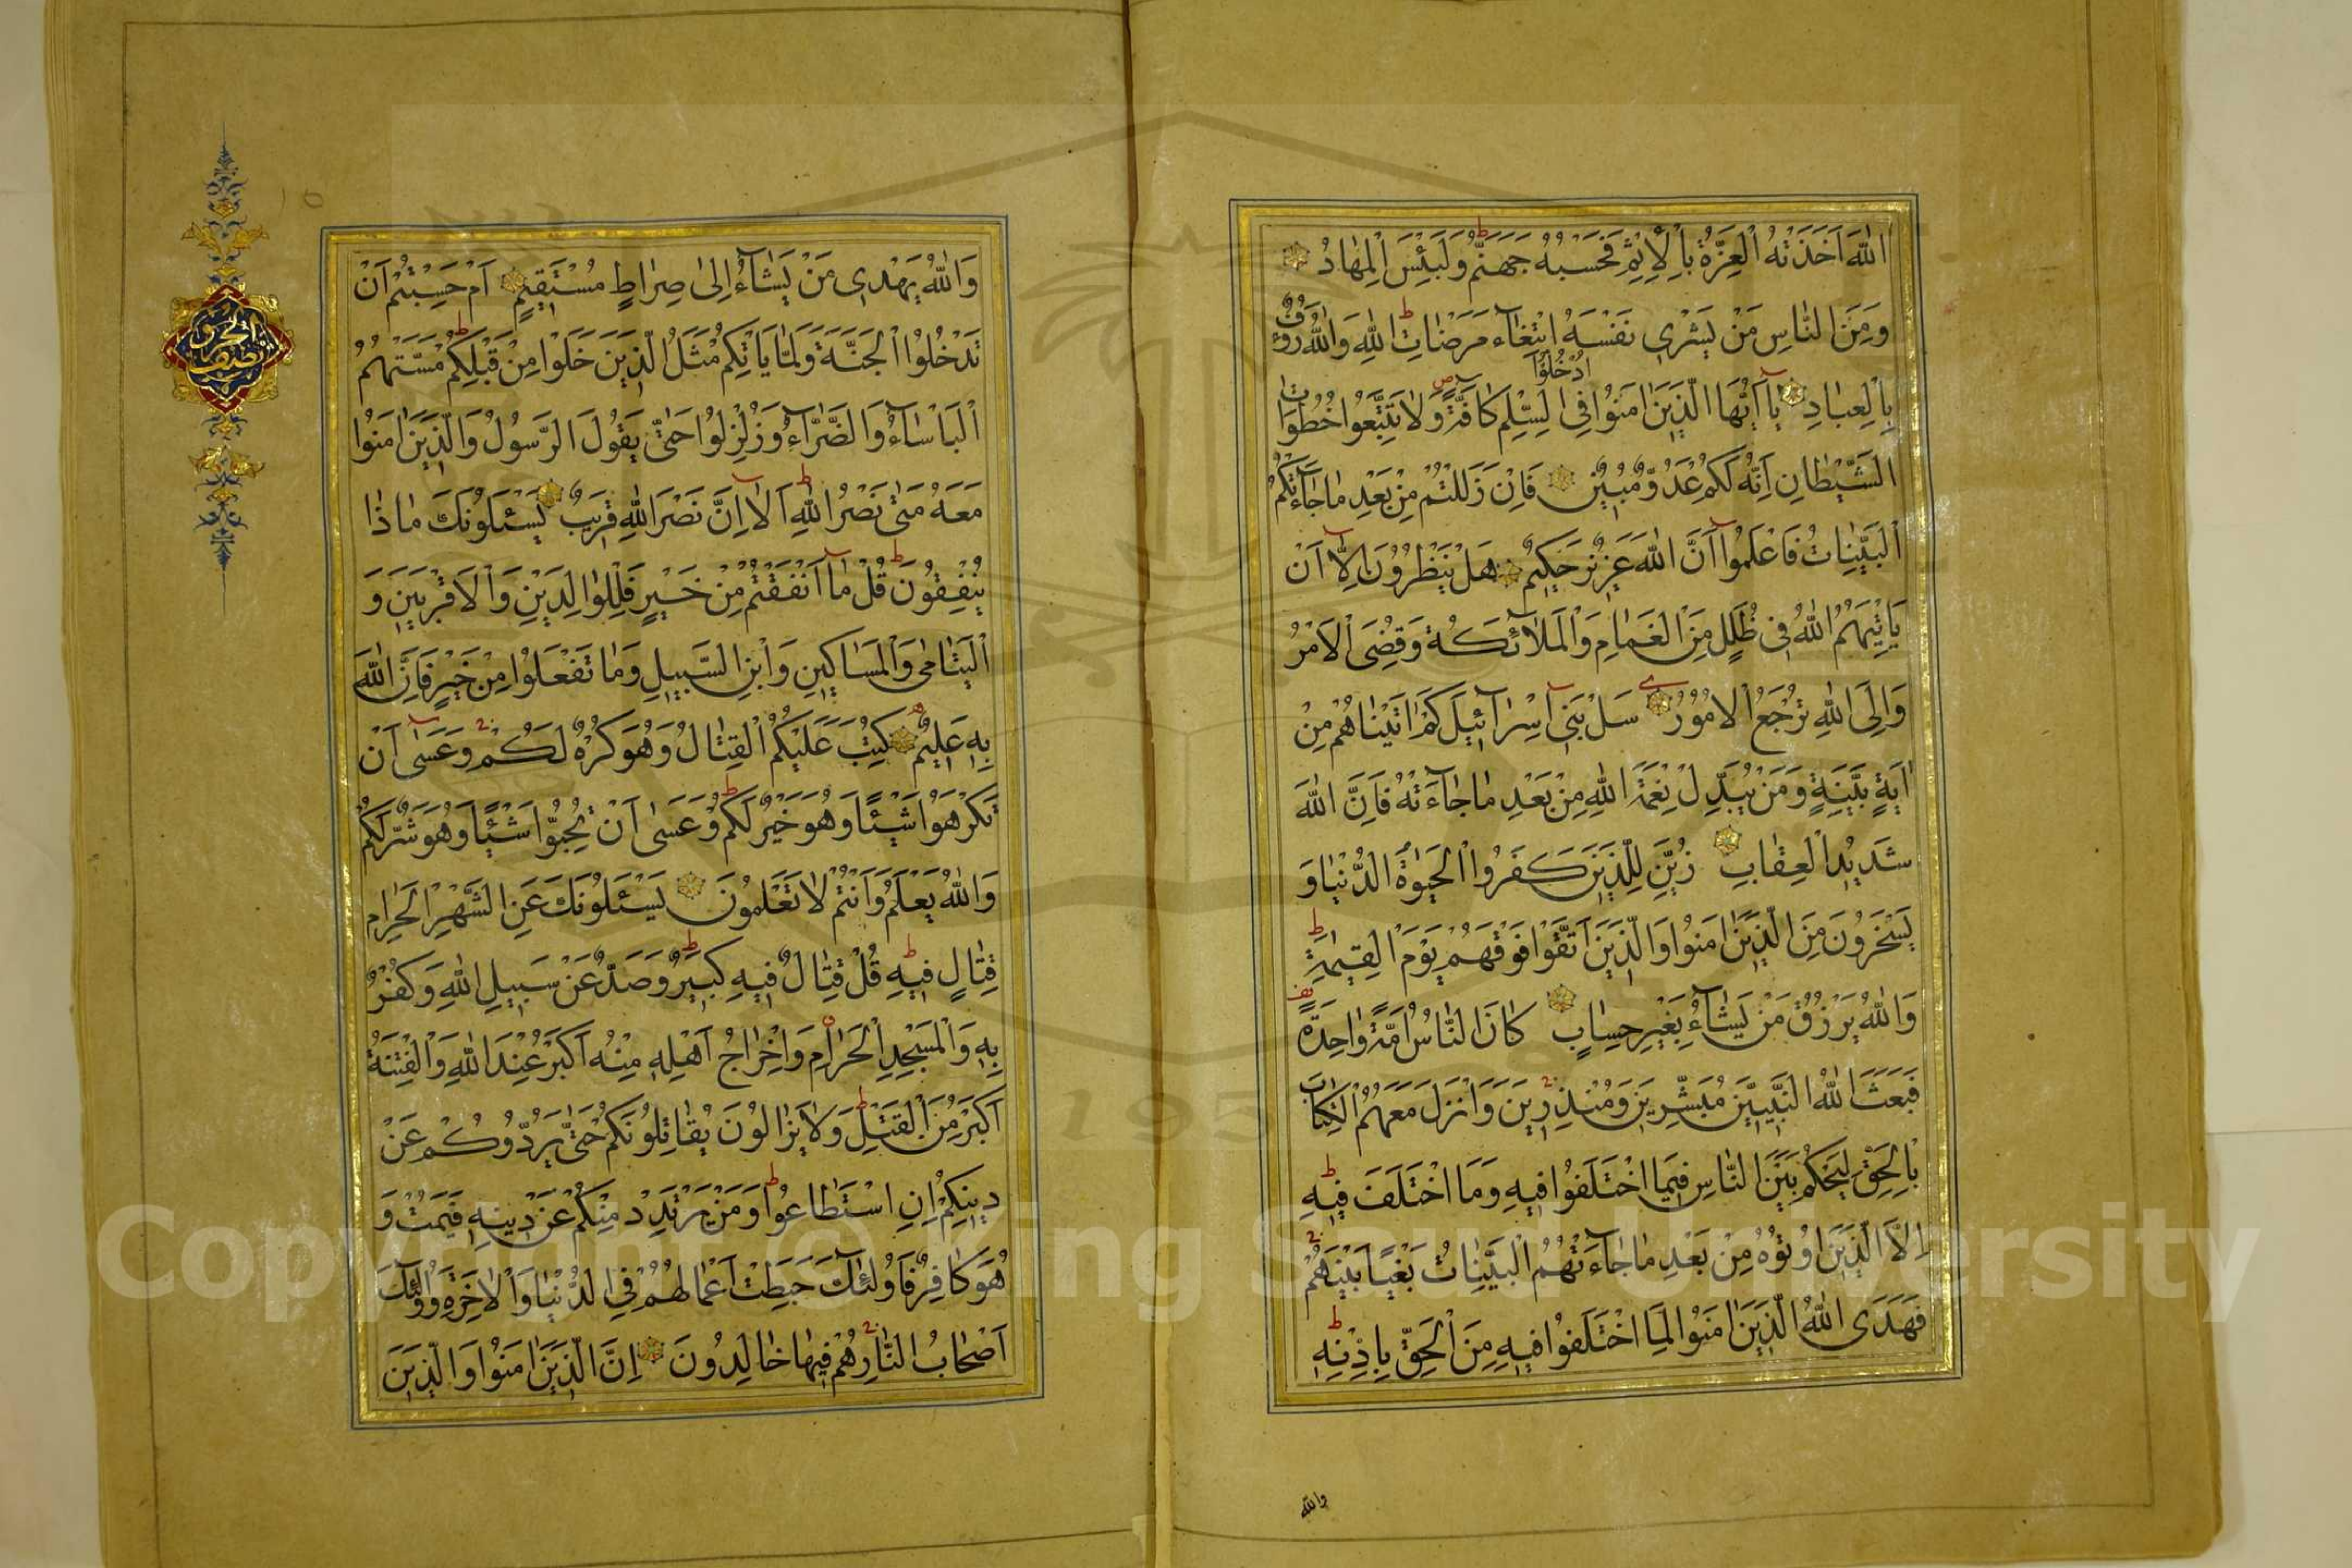 اللّٰهَ اَخَذَتْهُ الْعِزَّةُ بِالْاِثْمِ فَحَسْبُهُ جَهَنَّمُ وَلَبِئْسَ الْمِهَادُ
وَمِنَ النَّاسِ مَنْ يَشْرِى نَفْسَهُ ابْتِغَاءَ مَرْضَاتِ اللّٰهِ وَاللّٰهُ رَوُفٌ
بِالْعِبَادِ يَا اَيُّهَا الَّذِينَ اٰمَنُوا ادْخُلُوا فِى السِّلْمِ كَافَّةً وَلَا تَتَّبِعُوا خُطُوَاتِ
الشَّيْطَانِ اِنَّهُ لَكُمْ عَدُوٌّ مُبِينٌ فَاِنْ زَلَلْتُمْ مِنْ بَعْدِ مَا جَاءَتْكُمُ
الْبَيِّنَاتُ فَاعْلَمُوا اَنَّ اللّٰهَ عَزِيزٌ حَكِيمٌ هَلْ يَنْظُرُونَ اِلَّا اَنْ
يَاْتِيَهُمُ اللّٰهُ فِى ظُلَلٍ مِنَ الْغَمَامِ وَالْمَلَائِكَةُ وَقُضِىَ الْاَمْرُ
وَاِلَى اللّٰهِ تُرْجَعُ الْاُمُورُ سَلْ بَنِى اِسْرَائِيلَ كَمْ اٰتَيْنَاهُمْ مِنْ
اٰيَةٍ بَيِّنَةٍ وَمَنْ يُبَدِّلْ نِعْمَةَ اللّٰهِ مِنْ بَعْدِ مَا جَاءَتْهُ فَاِنَّ اللّٰهَ
شَدِيدُ الْعِقَابِ زُيِّنَ لِلَّذِينَ كَفَرُوا الْحَيٰوةُ الدُّنْيَا وَ
يَسْخَرُونَ مِنَ الَّذِينَ اٰمَنُوا وَالَّذِينَ اتَّقَوْا فَوْقَهُمْ يَوْمَ الْقِيٰمَةِ
وَاللّٰهُ يَرْزُقُ مَنْ يَشَاءُ بِغَيْرِ حِسَابٍ كَانَ النَّاسُ اُمَّةً وَاحِدَةً
فَبَعَثَ اللّٰهُ النَّبِيِّينَ مُبَشِّرِينَ وَمُنْذِرِينَ وَاَنْزَلَ مَعَهُمُ الْكِتَابَ
بِالْحَقِّ لِيَحْكُمَ بَيْنَ النَّاسِ فِيمَا اخْتَلَفُوا فِيهِ وَمَا اخْتَلَفَ فِيهِ
اِلَّا الَّذِينَ اُوتُوهُ مِنْ بَعْدِ مَا جَاءَتْهُمُ الْبَيِّنَاتُ بَغْيًا بَيْنَهُمْ
فَهَدَى اللّٰهُ الَّذِينَ اٰمَنُوا لِمَا اخْتَلَفُوا فِيهِ مِنَ الْحَقِّ بِاِذْنِهِ
والله
وَاللّٰهُ يَهْدِى مَنْ يَشَاءُ اِلٰى صِرَاطٍ مُسْتَقِيمٍ اَمْ حَسِبْتُمْ اَنْ
تَدْخُلُوا الْجَنَّةَ وَلَمَّا يَاْتِكُمْ مَثَلُ الَّذِينَ خَلَوْا مِنْ قَبْلِكُمْ مَسَّتْهُمُ
الْبَاْسَاءُ وَالضَّرَّاءُ وَزُلْزِلُوا حَتّٰى يَقُولَ الرَّسُولُ وَالَّذِينَ اٰمَنُوا
مَعَهُ مَتٰى نَصْرُ اللّٰهِ اَلَا اِنَّ نَصْرَ اللّٰهِ قَرِيبٌ يَسْئَلُونَكَ مَاذَا
يُنْفِقُونَ قُلْ مَا اَنْفَقْتُمْ مِنْ خَيْرٍ فَلِلْوَالِدَيْنِ وَالْاَقْرَبِينَ وَ
الْيَتَامٰى وَالْمَسَاكِينِ وَابْنِ السَّبِيلِ وَمَا تَفْعَلُوا مِنْ خَيْرٍ فَاِنَّ اللّٰهَ
بِهِ عَلِيمٌ كُتِبَ عَلَيْكُمُ الْقِتَالُ وَهُوَ كُرْهٌ لَكُمْ وَعَسٰى اَنْ
تَكْرَهُوا شَيْئًا وَهُوَ خَيْرٌ لَكُمْ وَعَسٰى اَنْ تُحِبُّوا شَيْئًا وَهُوَ شَرٌّ لَكُمْ
وَاللّٰهُ يَعْلَمُ وَاَنْتُمْ لَا تَعْلَمُونَ يَسْئَلُونَكَ عَنِ الشَّهْرِ الْحَرَامِ
قِتَالٍ فِيهِ قُلْ قِتَالٌ فِيهِ كَبِيرٌ وَصَدٌّ عَنْ سَبِيلِ اللّٰهِ وَكُفْرٌ
بِهِ وَالْمَسْجِدِ الْحَرَامِ وَاِخْرَاجُ اَهْلِهِ مِنْهُ اَكْبَرُ عِنْدَ اللّٰهِ وَالْفِتْنَةُ
اَكْبَرُ مِنَ الْقَتْلِ وَلَا يَزَالُونَ يُقَاتِلُونَكُمْ حَتّٰى يَرُدُّوكُمْ عَنْ
دِينِكُمْ اِنِ اسْتَطَاعُوا وَمَنْ يَرْتَدِدْ مِنْكُمْ عَنْ دِينِهِ فَيَمُتْ وَ
هُوَ كَافِرٌ فَاُولٰئِكَ حَبِطَتْ اَعْمَالُهُمْ فِى الدُّنْيَا وَالْاٰخِرَةِ وَاُولٰئِكَ
اَصْحَابُ النَّارِ هُمْ فِيهَا خَالِدُونَ اِنَّ الَّذِينَ اٰمَنُوا وَالَّذِينَ
Copyright © King Saud University